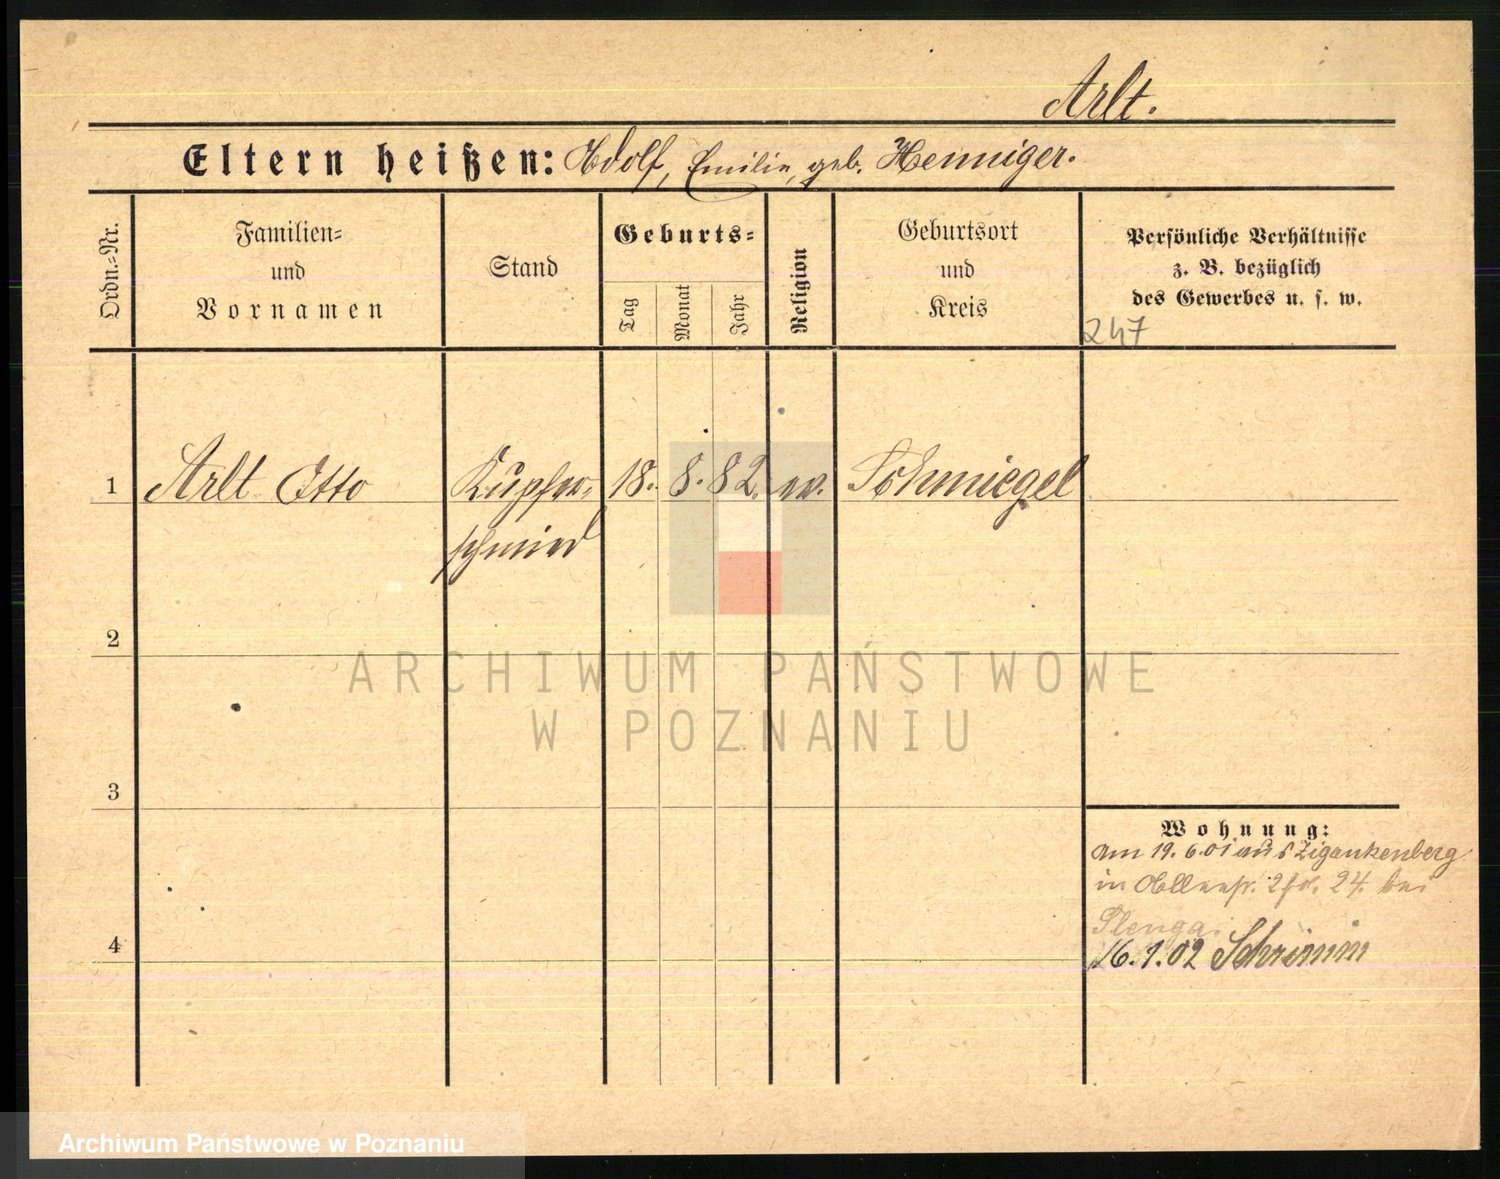 Arlt.
Eltern heißen: Adolf, Emilie, geb. Henniger.
Ordn.-Nr.
Familien-
und
Vornamen
Stand
Geburts-
Tag
Monat
Jahr
Religion
Geburtsort
und
Kreis
Persönliche Verhältnisse
z. B. bezüglich
des Gewerbes u. s. w.
247
1 Arlt Otto Kupfer- 18. 8. 82. ev. Schmiegel
schmied
2
ARCHIWUM PAŃSTWOWE
W POZNANIU
3
Wohnung:
am 19. 6. 01 aus Zigankenberg
in 24. bei
Plenga.
4
16.1.02 Schrimm
Archiwum Państwowe w Poznaniu